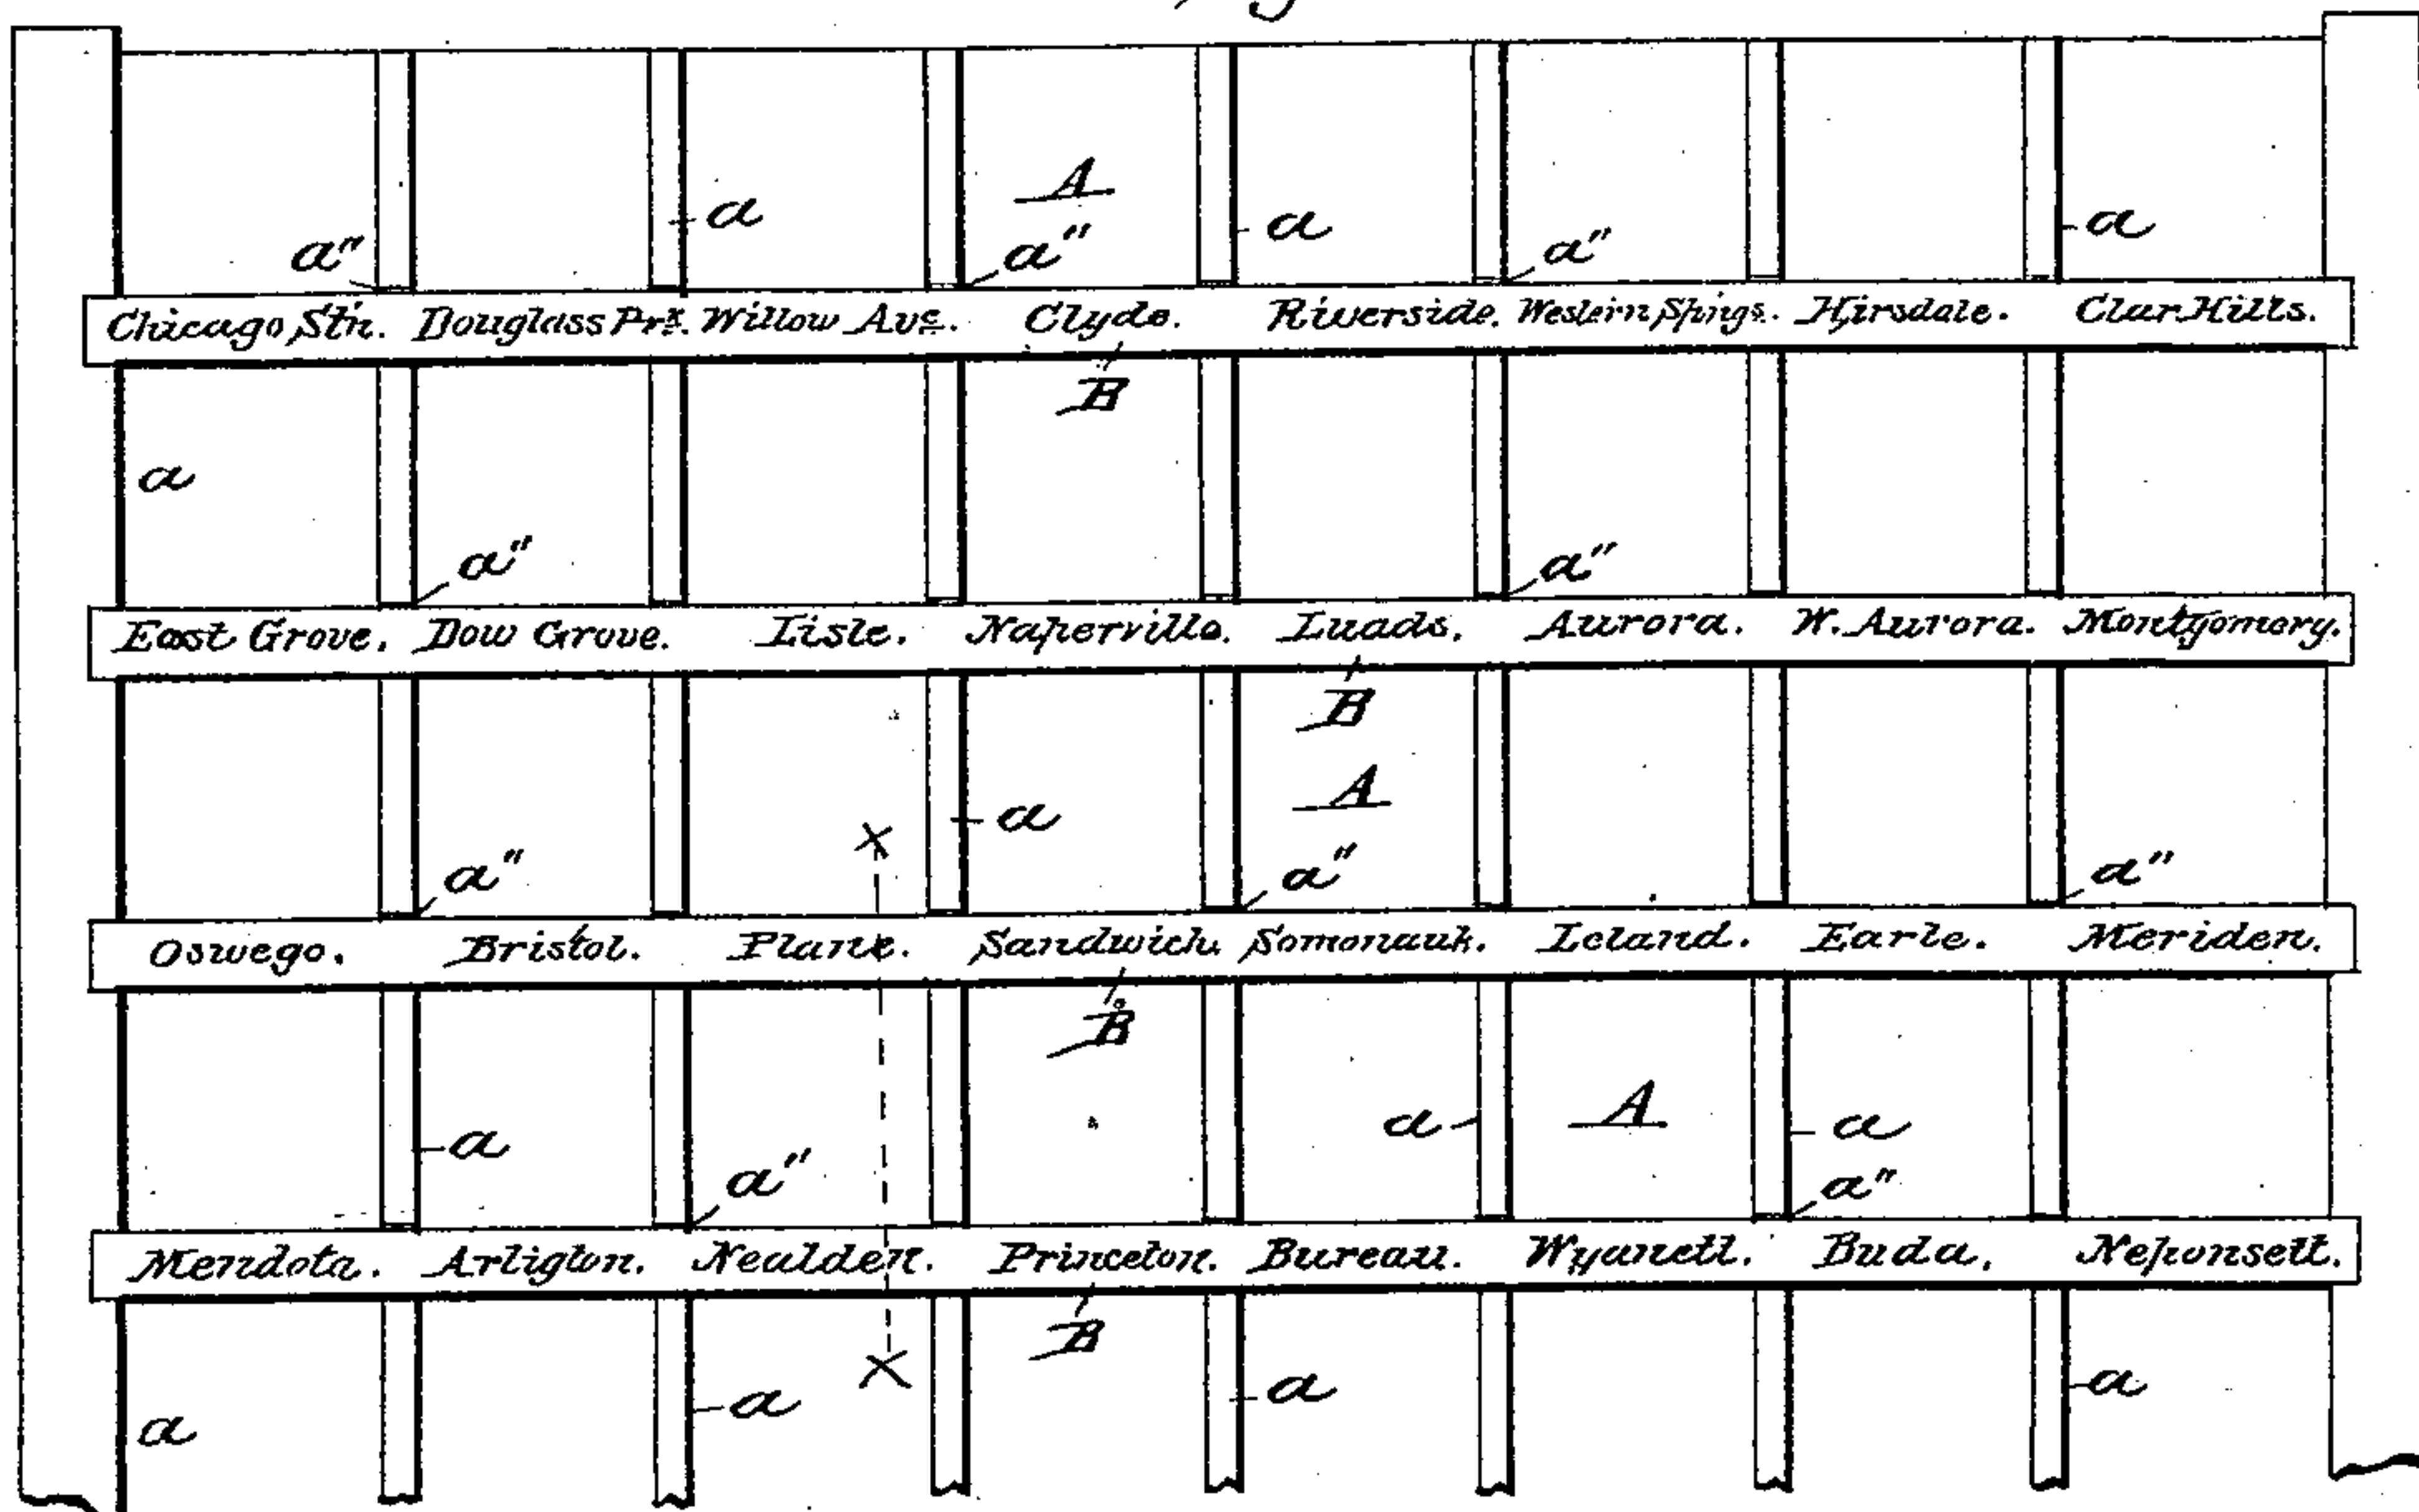 A
a a a
a" a" a"
Chicago Stn. Douglass Prk. Willow Ave. Clyde. Riverside. Western Spings. Hinsdale. Clar. Hills.
B
a
a" a"
East Grove. Dow Grove. Lisle. Naperville. Luads. Aurora. W. Aurora. Montgomery.
B
A
X a
a" a" a"
Oswego. Bristol. Plane. Sandwich. Somonauk. Leland. Earle. Meriden.
B
A
a a a
a" a"
Mendota. Arligton. Nealden. Princeton. Bureau. Wyanett. Buda. Neponsett.
B
X
a a a a